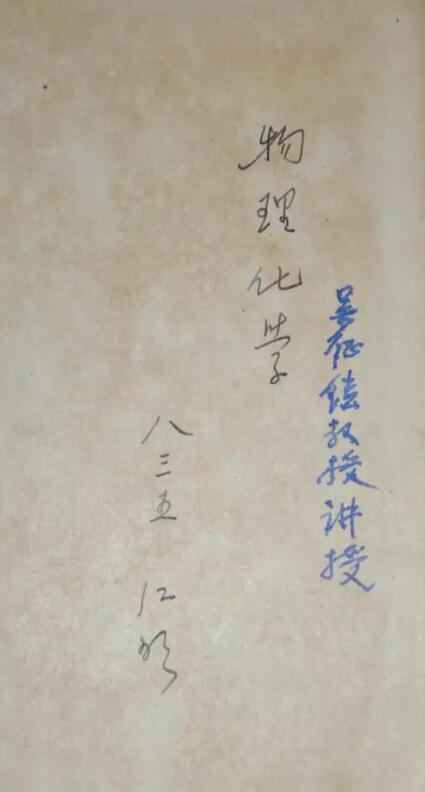 吴征铠教授讲授
物理化学
八三五